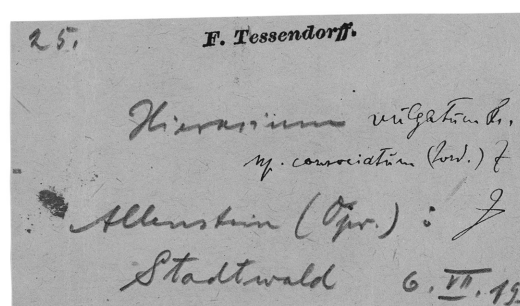 25.
F. Tessendorff.
Hieracium vulgatum Fr.
sp. consociatum (Jord.) Z
Allenstein (Opr.) :
Stadtwald 6. VII. 19